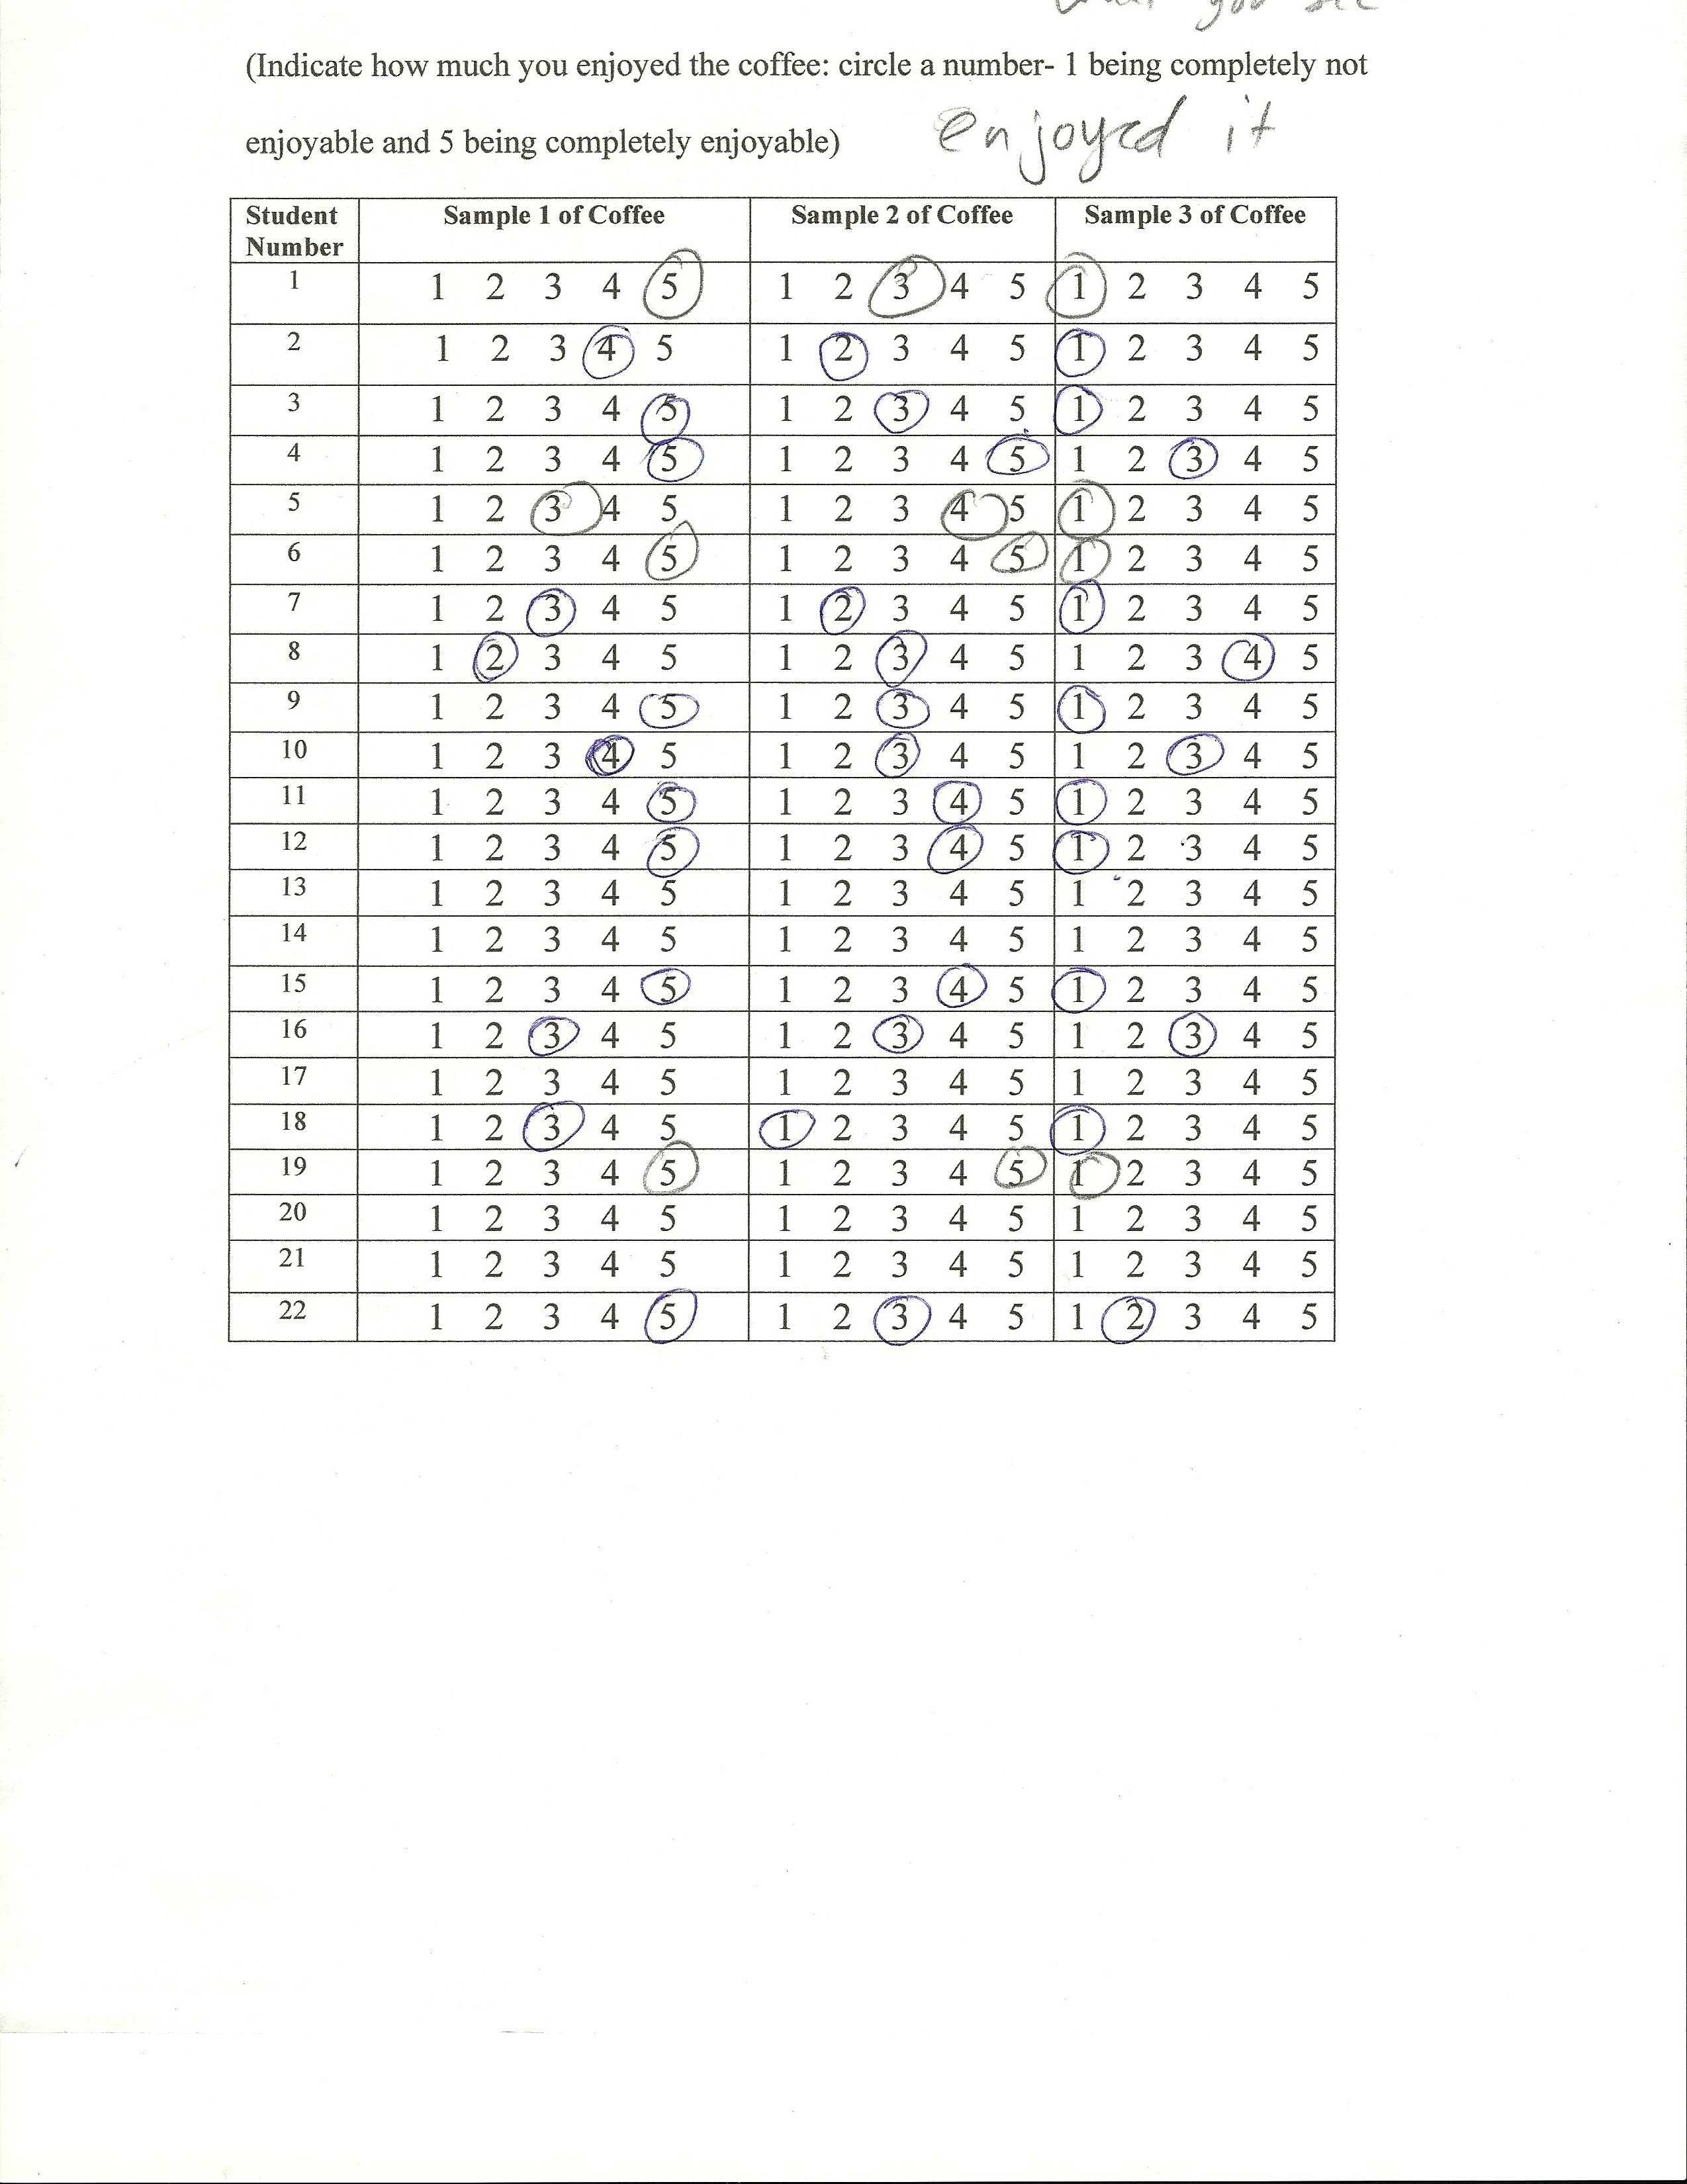 you see
(Indicate how much you enjoyed the coffee: circle a number- 1 being completely not
enjoyable and 5 being completely enjoyable) enjoyed it
Student Number Sample 1 of Coffee Sample 2 of Coffee Sample 3 of Coffee
1 1 2 3 4 5 1 2 3 4 5 1 2 3 4 5
2 1 2 3 4 5 1 2 3 4 5 1 2 3 4 5
3 1 2 3 4 5 1 2 3 4 5 1 2 3 4 5
4 1 2 3 4 5 1 2 3 4 5 1 2 3 4 5
5 1 2 3 4 5 1 2 3 4 5 1 2 3 4 5
6 1 2 3 4 5 1 2 3 4 5 1 2 3 4 5
7 1 2 3 4 5 1 2 3 4 5 1 2 3 4 5
8 1 2 3 4 5 1 2 3 4 5 1 2 3 4 5
9 1 2 3 4 5 1 2 3 4 5 1 2 3 4 5
10 1 2 3 4 5 1 2 3 4 5 1 2 3 4 5
11 1 2 3 4 5 1 2 3 4 5 1 2 3 4 5
12 1 2 3 4 5 1 2 3 4 5 1 2 3 4 5
13 1 2 3 4 5 1 2 3 4 5 1 2 3 4 5
14 1 2 3 4 5 1 2 3 4 5 1 2 3 4 5
15 1 2 3 4 5 1 2 3 4 5 1 2 3 4 5
16 1 2 3 4 5 1 2 3 4 5 1 2 3 4 5
17 1 2 3 4 5 1 2 3 4 5 1 2 3 4 5
18 1 2 3 4 5 1 2 3 4 5 1 2 3 4 5
19 1 2 3 4 5 1 2 3 4 5 1 2 3 4 5
20 1 2 3 4 5 1 2 3 4 5 1 2 3 4 5
21 1 2 3 4 5 1 2 3 4 5 1 2 3 4 5
22 1 2 3 4 5 1 2 3 4 5 1 2 3 4 5